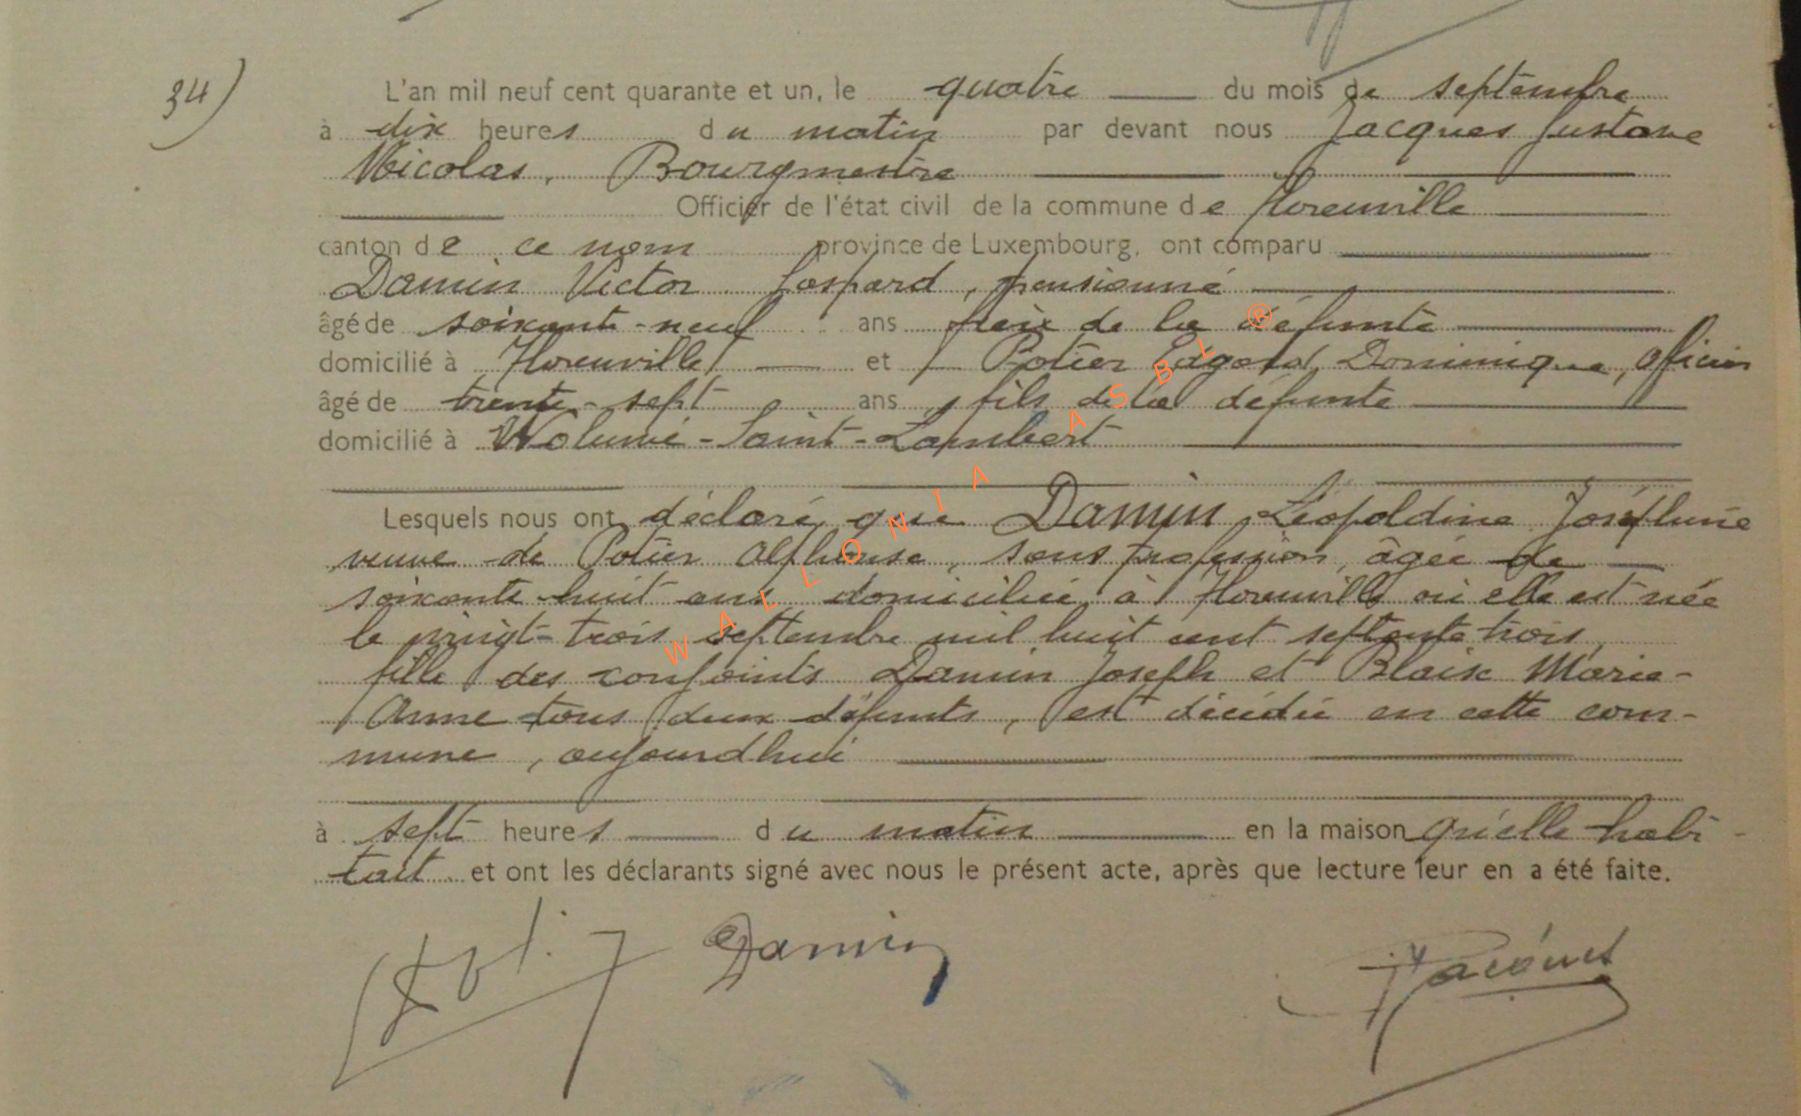 34)
L'an mil neuf cent quarante et un, le quatre du mois de septembre
à dix heures du matin par devant nous Jacques Gustave
Nicolas, Bourgmestre
Officier de l'état civil de la commune de Florenville
canton de ce nom province de Luxembourg, ont comparu
Damin Victor Gaspard, pensionné
âgé de soixante-neuf ans frère de la défunte
domicilié à Florenville et Potier Edgard Dominique, officier
âgé de trente-sept ans, fils de la défunte
domicilié à Woluwé-Saint-Lambert
Lesquels nous ont déclaré que Damin, Léopoldine Joséphine
veuve de Potier Alphonse, sans profession, âgée de
soixante huit ans domiciliée à Florenville où elle est née
le vingt-trois septembre mil huit cent septante trois,
fille des conjoints Damin Joseph et Blaise Marie-
Anne tous deux défunts, est décédée en cette com-
mune, aujourd'hui
à sept heures du matin en la maison qu'elle habi-
tait et ont les déclarants signé avec nous le présent acte, après que lecture leur en a été faite.
Damin
Jacques
WALLONIA ASBL ®